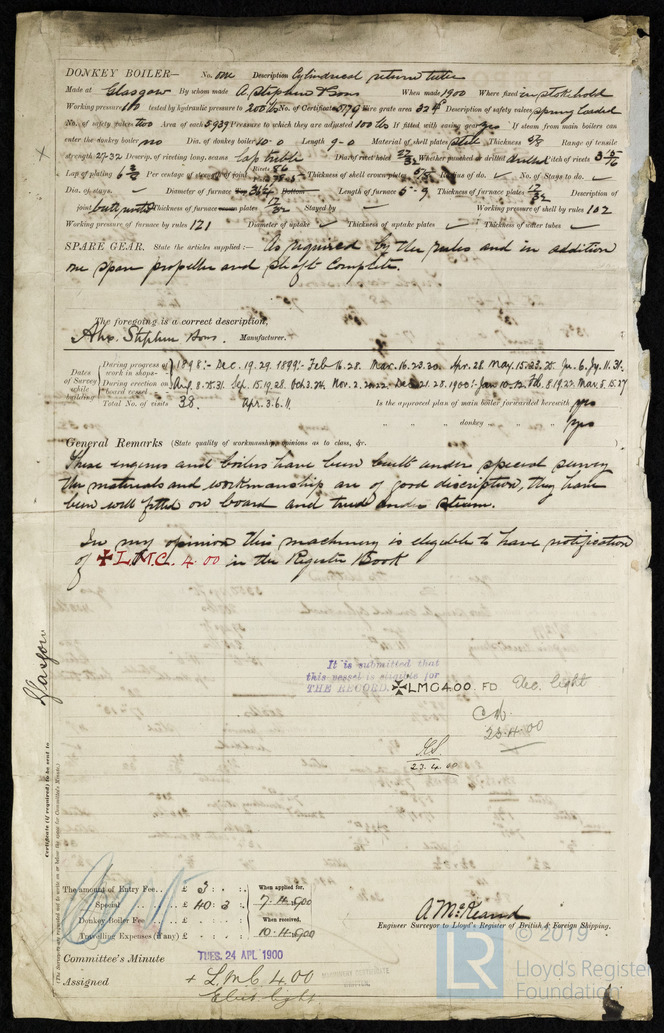 DONKEY BOILER— No. one Description Cylindrical return tube
Made at Glasgow By whom made A. Stephen & Sons When made 1900 Where fixed in stokehold
Working pressure 100 tested by hydraulic pressure to 200 lbs No. of Certificate 5179 Fire grate area 32 Description of safety valves spring loaded
No. of safety valves two Area of each 5939 Pressure to which they are adjusted 100 lbs If fitted with easing gear yes If steam from main boilers can
enter the donkey boiler no Dia. of donkey boiler 10-0 Length 9-0 Material of shell plates steel Thickness Range of tensile
strength 27-32 Descrip. of riveting long. seams lap treble Dia. of rivet holes Whether punched or drilled drilled Pitch of rivets 3 15/16
Lap of plating Per centage of strength of joint Rivets 86 Thickness of shell crown plates Radius of do. ✓ No. of Stays to do. ✓
Dia. of stays. ✓ Diameter of furnace Length of furnace 5-9 Thickness of furnace plates 17/32 Description of
joint Thickness of furnace plates 17/32 Stayed by ✓ Working pressure of shell by rules 102
Working pressure of furnace by rules 121 Diameter of uptake ✓ Thickness of uptake plates ✓ Thickness of water tubes ✓
SPARE GEAR. State the articles supplied:— As required by the rules and in addition
one spare propeller and shaft complete.
The foregoing is a correct description,
Alex. Stephen & Sons. Manufacturer.
Dates of Survey while building
During progress of work in shops - - 1898:- Dec. 19. 29. 1899:- Feb 16. 28. Mar. 16. 23. 30. Apr. 28. May. 15. 23. 25. Ju. 6. Jy. 11. 31.
During erection on board vessel - - - Sep. 15. 19. 28. Oct. 3. 24. Nov. 2. Dec. 21. 28. 1900:- Jan 10. 12. Feb. 8. 19. 22. Mar. 5. 15. 27
Total No. of visits 38. Apr. 3. 6. 11. Is the approved plan of main boiler forwarded herewith yes
" " " donkey " " " yes
General Remarks (State quality of workmanship, opinions as to class, &c.
These engines and boilers have been built under special survey
the materials and workmanship are of good discription, they have
been well fitted on board and tried under steam.
In my opinion this machinery is eligible to have notification
of ✠ L.M.C. 4.00 in the Register Book
It is submitted that
this vessel is eligible for
THE RECORD. ✠ LMC 4.00. FD Elec. light
23.4.00
27.4.00
Glasgow
Certificate (if required) to be sent to
(The Surveyors are requested not to write on or below the space for Committee's Minute.)
The amount of Entry Fee. . . £ 3 : :
Special . . . £ 40 : 3 :
Donkey Boiler Fee . . . £ : :
Travelling Expenses (if any) £ : :
When applied for,
7.4.1900
When received,
10.4.1900
A McKeand
Engineer Surveyor to Lloyd's Register of British & Foreign Shipping.
Committee's Minute TUES. 24 APL 1900
Assigned + L.M.C 4.00
Elec light
© 2019
LR
Lloyd's Register
Foundation